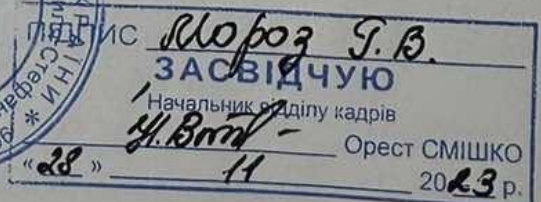 ПІДПИС Мороз Г. В.
ЗАСВІДЧУЮ
Начальник відділу кадрів
Орест СМІШКО
« 28 » 11 2023 р.